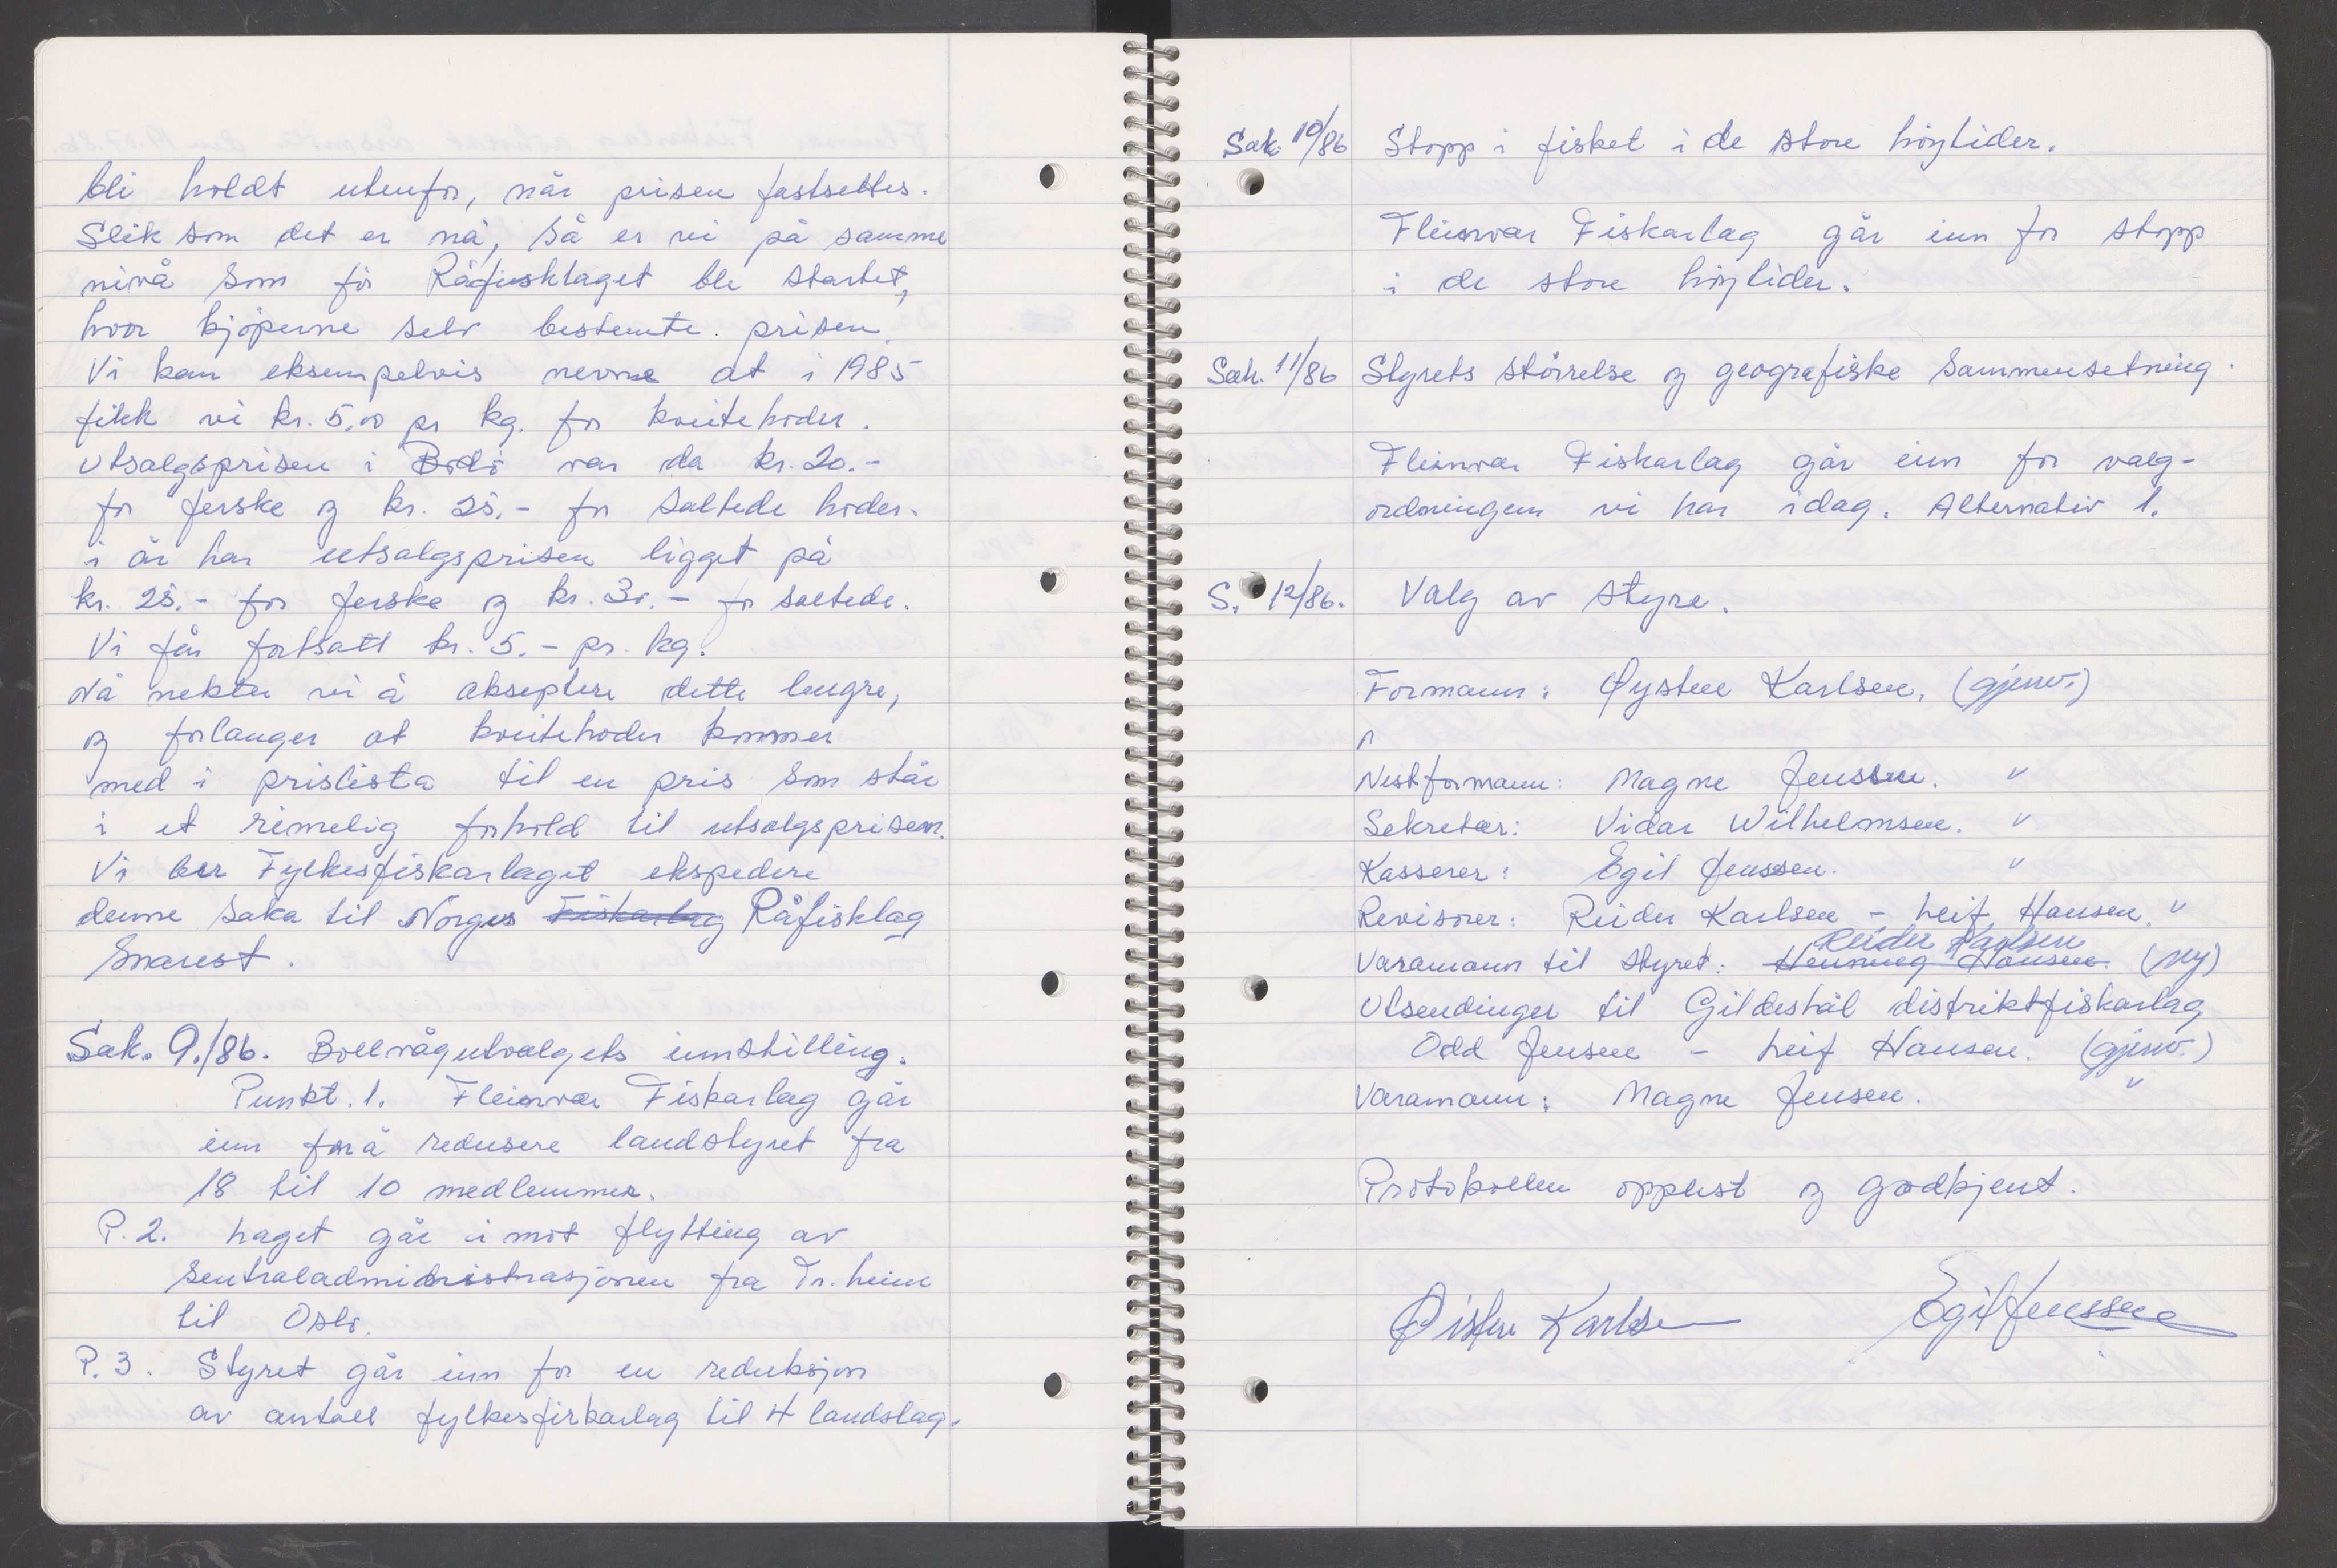 bli holdt utenfor, når prisen fastsettes.
Slik som det er nå, så er vi på samme
nivå som før Råfisklaget ble startet,
hvor kjøperne selv bestemte prisen.
Vi kan eksempelvis nevne at i 1985
fikk vi kr. 5,00 pr kg. for kveitehoder.
Utsalgsprisen i Bodø var da kr. 20.-
for ferske og kr. 25.- for saltede hoder.
i år har utsalgsprisen ligget på
kr. 25.- for ferske og kr. 30.- for saltede.
Vi får fortsatt kr. 5.- pr. kg.
Nå nekter vi å akseptere dette lengre,
og forlanger at kveitehoder kommer
med i prislista til en pris som står
i et rimelig forhold til utsalgsprisen.
Vi ber Fylkesfiskarlaget ekspedere
denne saka til Norges Fiskarlag Råfisklag
snarest.
Sak. 9./86. Bollvågutvalgets innstilling.
Punkt. 1. Fleinvær Fiskarlag går
inn for å redusere landstyret fra
18 til 10 medlemmer.
P. 2. Laget går i mot flytting av
sentraladministrasjonen fra Tr.heim
til Oslo.
P. 3. Styret går inn for en reduksjon
av antall fylkesfirkarlag til 4 landslag.
Sak. 10/86 Stopp i fisket i de store høytider.
Fleinvær Fiskarlag går inn for stopp
i de store høytider.
Sak. 11/86 Styrets størrelse og geografiske sammensetning.
Fleinvær Fiskarlag går inn for valg-
ordningen vi har idag. Alternativ 1.
S. 12/86. Valg av styre.
Formann: Øystein Karlsen, (gjenv.)
Nestformann: Magne Jenssen. "
Sekretær: Vidar Wilhelmsen. "
Kasserer: Egil Jenssen. "
Revisorer: Reider Karlsen - Leif Hansen. "
Reider Karlsen
Varamann til styret: Henning Hansen. (ny)
Utsendinger til Gildeskål distriktfiskarlag
Odd Jensen - Leif Hansen. (gjenv.)
Varamann: Magne Jensen. "
Protokollen opplest og godkjent.
Øisten Karlsen Egil Jenssen